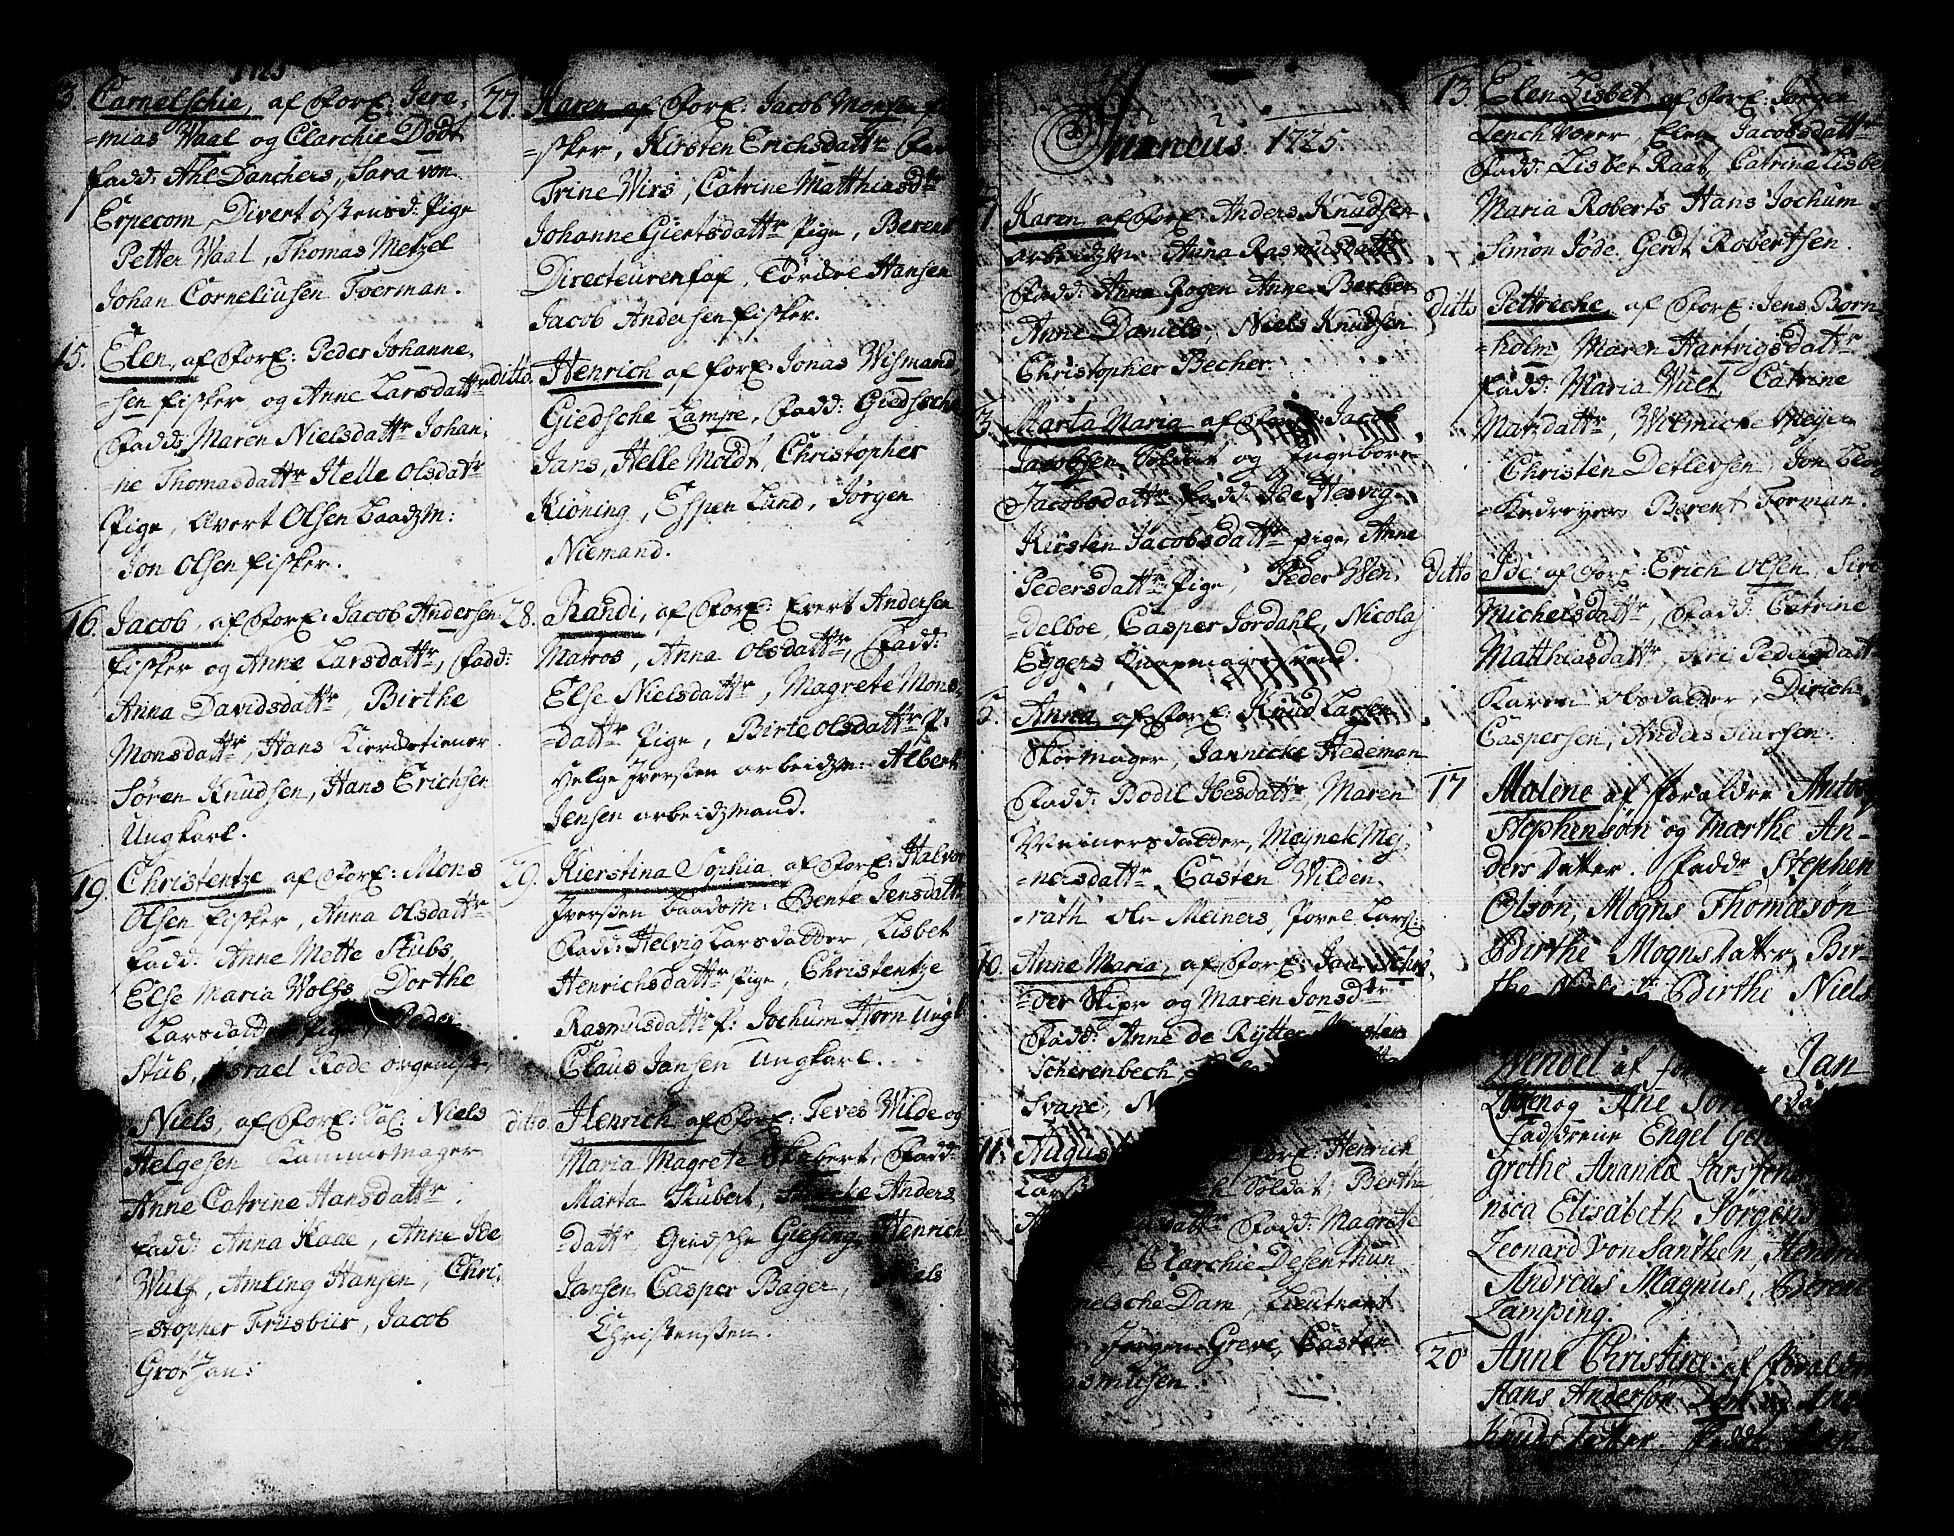 1725
3. Carnelschie, af Foræ: Jere,
=mias Waal og Clarchie Dodt
Fadd: Ahl Danchers, Sara von
Erpecom, Divert Østensd: Pige
Petter Waal, Thomas Metzel
Johan Corneliusen Foerman.
15. Elen, af Foræ: Peder Johanne,
=sen fisker og Anne Larsdattr
Fadd: Maren Nielsdattr Johan,
=ne Thomasdattr Helle Olsdatr
Pige, Evert Olsen Baadzm:
Jon Olsen fisker.
16. Jacob, af Foræ: Jacob Andersen
fisker og Anne Larsdattr, Fadd:
Anna Davidsdattr, Birthe
Monsdattr, Hans
Søren Knudsen, Hans Erichsen
Ungkarl.
19. Christentze af Foræ: Mons
Olsen fisker, Anna Olsdattr
Fadd: Anne Mette Stubs,
Else Maria Wolfs, Dorthe
Larsdatter Pige, Peder
Stub, Israel Rode organist,
Niels, af Foræ: Sal: Niels
Helgesen Kammemager
Anne Catrine Hansdattr.
Fadd: Anna Kaae, Anne Ide
Wulf, Amling Hansen, Chri,
=stopher Früsbüir, Jacob
Grot Jan:
27. Karen af Foræ: Jacob Monsen fi
=sker, Kirsten Erichsdattr Fad
Trine Wirs, Catrine Matthiasdtr
Johanne Giertsdattr Pige, Berent
Directeurens, Tørdel Hansen
Jacob Andersen fisker.
ditto. Henrich af foræ: Jonas Wismand,
Giedsche Lampe, Fadd: Giedsche
Jans, Helle Moldt, Christopher
Kiøning, Espen Lund, Jørgen
Niemand.
28. Randi, af Foræ: Evert Andersen
Matros, Anna Olsdattr, Fadd:
Else Nielsdattr, Magrete Mons,
=dattr Pige, Birte Olsdattr P:
Helge Iverssen arbeidzm: Albert
Jensen arbeidzmand.
29. Kierstina Sophia af Foræ: Halvor
Iverssen Baadsm: Bente Jensdattr
Fadd: Helvig Larsdatter, Lisbet
Henrichsdattr Pige, Christentze
Rasmusdattr P: Jochum Horn Ungk
Claus Jansen Ungkarl.
ditto. Henrich af Foræ: Teves Wilde og
Maria Magrete Skubert, Fadd:
Marta Skubert, Anders
=dattr, Giedsche Giesing, Henrich
Jansen Casper Bager, Niels
Christenssen.
Junius 1725.
1. Karen af Foræ: Anders Knudsen
arbeidzm. Anna Rasmusdattr
Fadd: Anna Rogen Anne Becher
Anne Daniels, Niels Knudsen
Christopher Becher.
3. Marta Maria af Foræ: Jacob
Jacobsen Soldat og Ingebore
Jacobsdattr Fadd: Ide Hesvig
Kirsten Jacobsdattr pige, Anne
Pedersdattr Pige, Peder Wen,
=delboe, Casper Jordahl, Nicolaj
Eggers
5. Anna af Foræ: Knud Larsen
Skoemager, Jannicke Hedeman
Fadd: Bodil Ibesdattr, Maren
Meinersdatter, Meynek Mej,
=nersdattr, Casten Wilden,
=rath Ole Meiners, Povel Lars:
10. Anne Maria, af Foræ: Jan Schri,
=der Skipr og Maren Jonsdtr
Fadd: Anne de Rytter Kirsten
Scherenbech,
Svane, N
11. August Foræ: Henrich
Soldat, Berthe
Fadd: Magrete
Clarchie Desenthun
nelsche Dam, Lieutnant
Jørgen Greve, Casten
asmusen.
13. Elen Lisbet af Foræ: Jørgen
Lench Væver, Elen Jacobsdattr
Fadd: Lisbet Raat, Catrine Lisbet
Maria Roberts Hans Jochum
Simon Jøde. Gerdt Robertsen.
ditto Pettreche, af Foræ: Jens Born
=holm, Maren Hartvigsdattr
Fadd: Maria Wuet, Catrine
Matsdattr, Wilmicke Meyer
Christen Detlefsen, Jon
Berent Forman.
ditto Ide af Foræ: Erich Olsen, Siro
Michelsdattr, Fadd: Catrine
Matthiasdattr, Ani Pedersdattr
Karen Olsdatter, Dirich
Caspersen, Anders Siursen.
17 Malene af Foraldre Anton
Stephensøn og Marthe An-
ders datter. Faddr Stephen
Olsøn, Mogns Thomasøn
Birthe Mognsdatter, Bir-
the Birthe Niels
Wendel af for Jan
og Ane Søren dat
Faddrene Engel Ger
grethe Ananda Larssen
nica Elisabeth Jørgens
Leonard von Santhen, Hendric
Andreas Magnus, Berent
Lamping.
20 Anne Christine: af Foraldre
Hans Andersøn Dam og Anne
Knuds datter. Fadd: